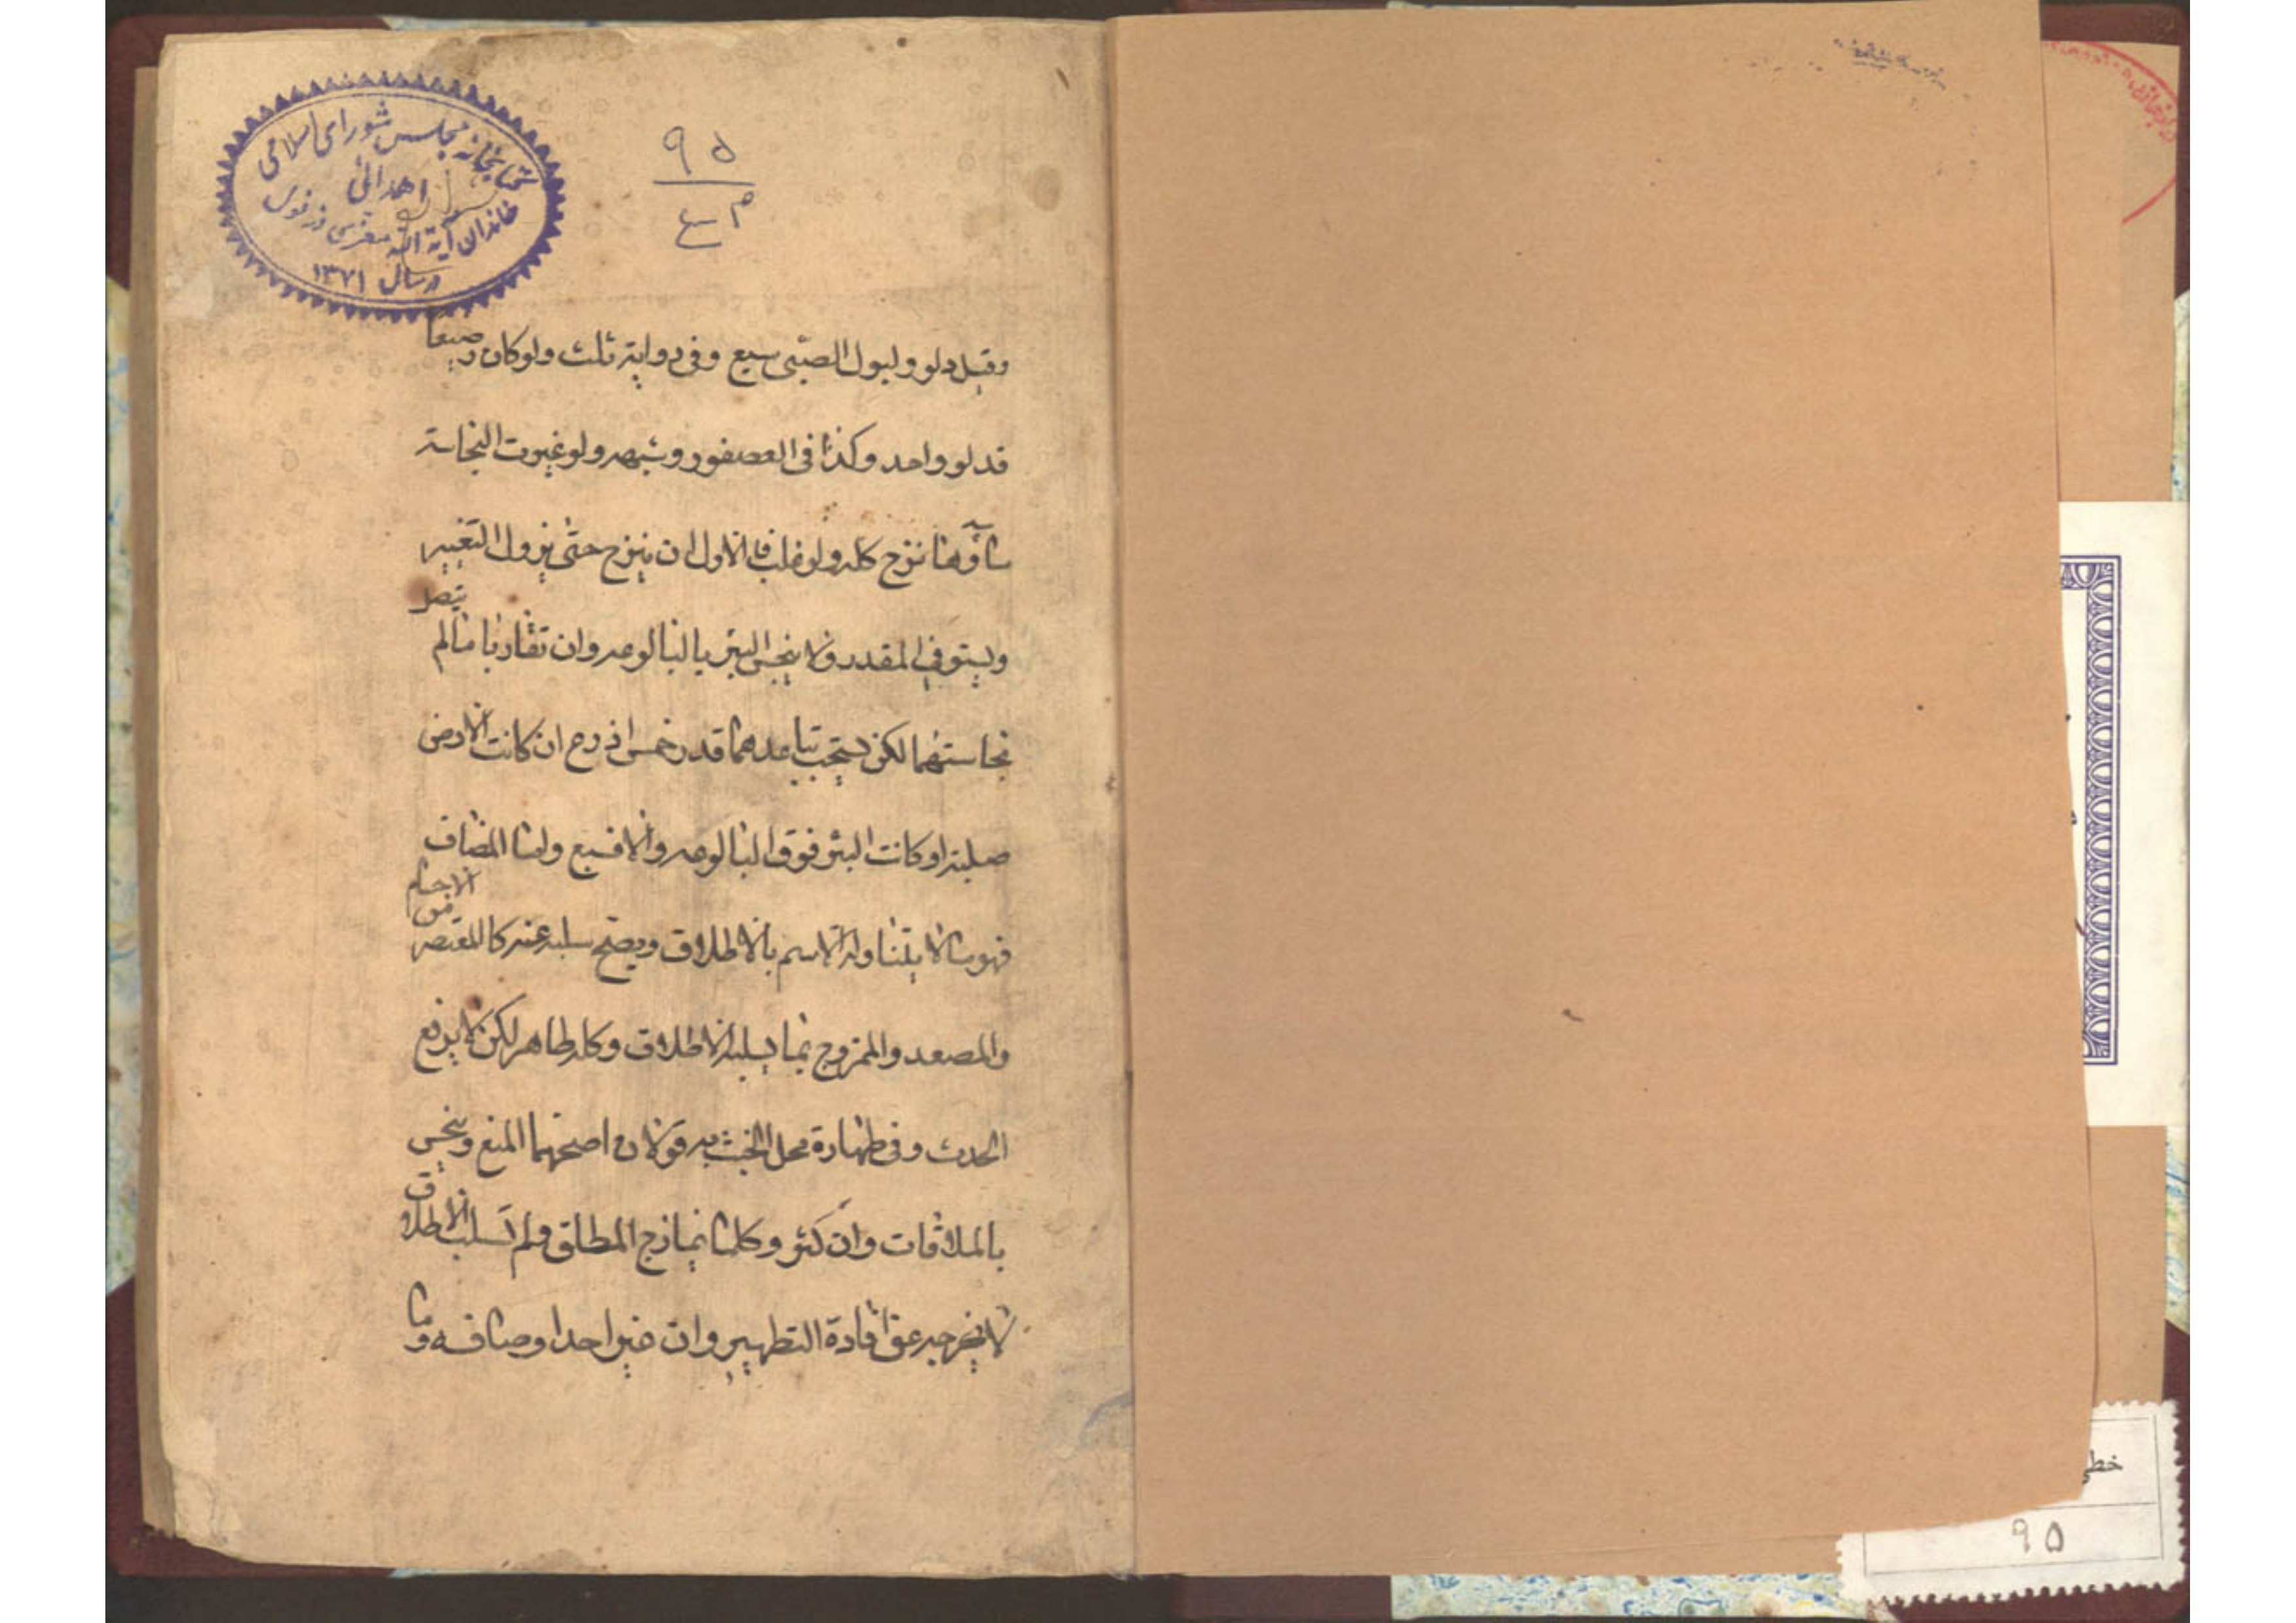 کتابخانه مجلس شورای اسلامی
اهدائی
خاندان آیة الله
در سال ۱۳۷۱
۹۵
وقيل دلو ولبول الصبی سبع وفی رواية ثلث ولو كان رضيعا
فدلو واحد وكذا فی العصفور وشبهه ولو غيرت النجاسة
ماؤها نزح كله ولو غلب فالاولی ان ينزح حتی يزول التغيير
ويستوفی المقدر ولا ينجس البئر بالبالوعه وان تقاربا ما لم يتصل
نجاستهما لكن يستحب تباعدهما قدر خمس اذرع ان كانت الارض
صلبة او كانت البئر فوق البالوعه والا فسبع واما المضاف
فهو ما لا يتناوله الاسم بالاطلاق ويصح سلبه عنه كالمعتصر من الاجسام
والمصعد والممزوج بما يسلبه الاطلاق وكله طاهر لكن لا يرفع
الحدث وفی طهارة محل الخبث به قولان اصحهما المنع وينجس
بالملاقات وان كثر وكلما يمازج المطلق ولم يسلب الاطلاق
لا يخرجه عن افادة التطهير وان غير احد اوصافه وما
خطی
۹۵